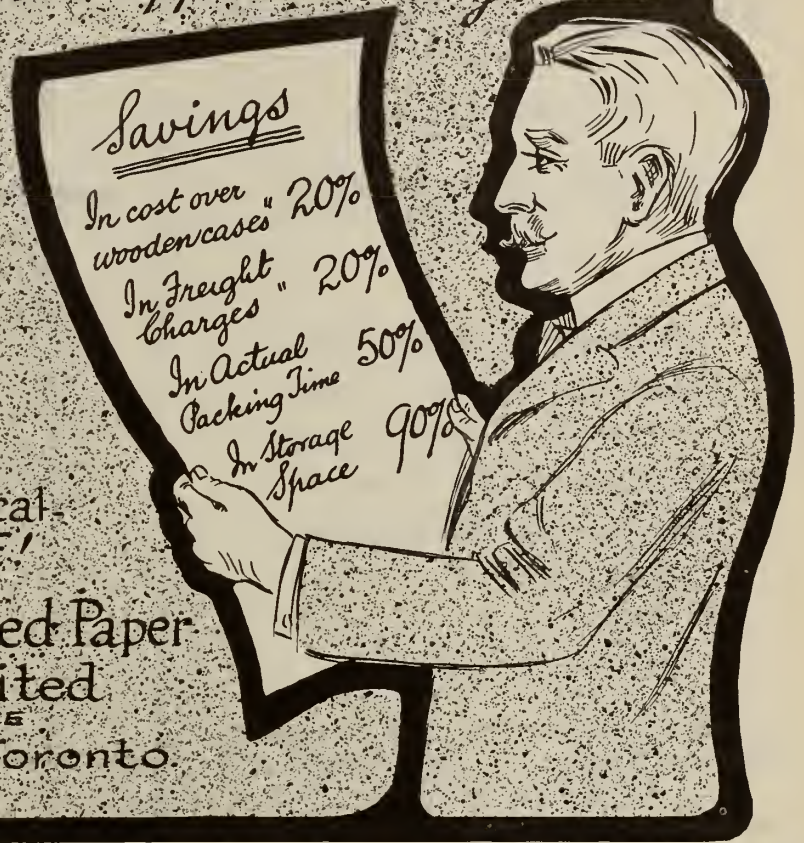 Savings
In cost over
wooden cases " 20%
In Freight
Charges " 20%
In Actual
Packing Time 50%
In Storage
Space 90%
cal-
ed Paper
ited
Toronto.